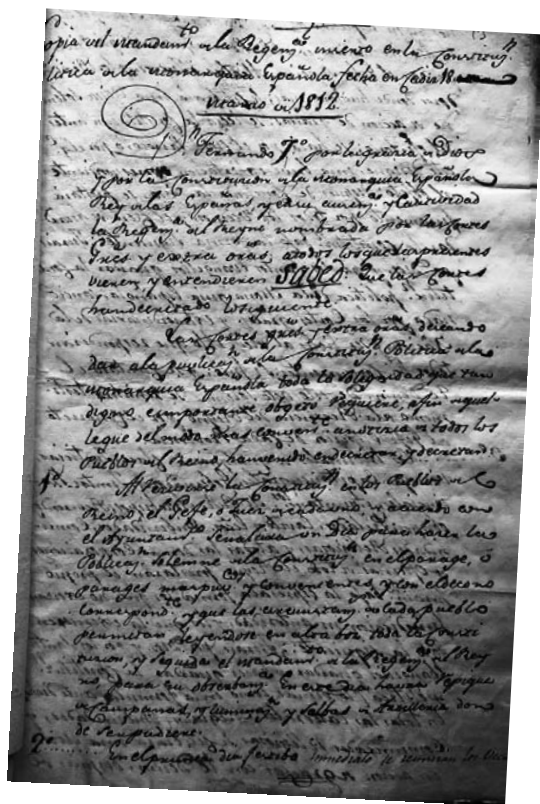 opia del mandamto de la Regena inserto en la Constituzn
litica de la monarquia Española fecha en Cadiz 18
marzo de 1812
Dn Fernando 7º por la gracia de Dios
y por la Constitucion de la monarquia Española
Rey de las Españas, y en su ausena y cautividad
la Regena del Reyno nombrada por las Cortes
Gnes y extraoras, a todos los que las presentes
vieren y entendieren SABED: Que las Cortes
han decretado lo siguiente
Las Cortes gnes y extraoras, deseando
dar a la publicn de la Constituzn Politica de la
monarquia Española toda la solegnidad que tan
digno, e importante obgeto requiere, a fin de que
llegue del modo mas convente a noticia de todos los
Pueblos del Reino, han venido en decretar, y decretan:
1º Al recivirse la Constituzn en los Pueblos del
Reino, el Gefe, ò Juez de cada uno de acuerdo con
el Ayuntamto señalara un Dia para hacer la
Publican solemne de la Constituzn en el parage, ò
parages mas y convenientes, y con el decoro
correspondte y que las circunstans de cada pueblo
permitan leyendose en alta boz toda la Consti
tucion, y seguida el mandamto de la Regena del Rey
no para su observana En este dia havra repique
de Campanas, yluminan y salbas de Artilleria don
de se pudiere.
2º En el primer dia festibo immediato se reuniran los vecis